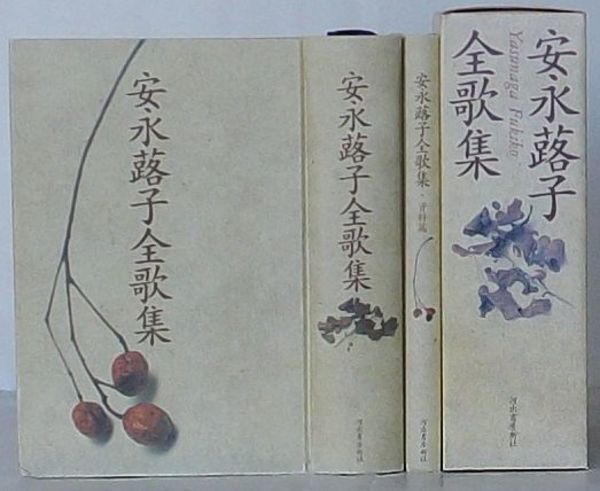 安永蕗子全歌集
安永蕗子全歌集
河出書房新社
安永蕗子全歌集・資料篇
河出書房新社
安永蕗子
全歌集
Yasunaga Fukiko
河出書房新社